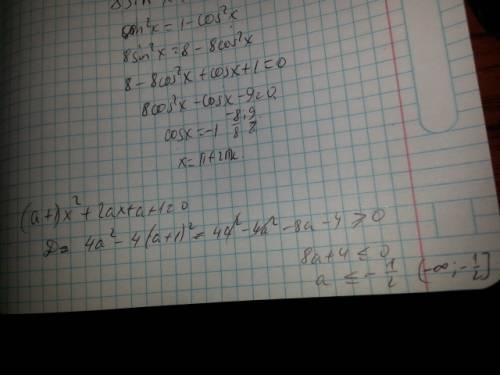 8sin
sin²x = 1 - cos²x
8sin²x = 8 - 8cos²x
8 - 8cos²x + cosx + 1 = 0
8cos²x - cosx - 9 = 0
cosx = -1 -8·9
8 8
x = π + 2πk
(a+1)x² + 2ax + a + 1 = 0
D = 4a² - 4(a+1)² = 4a² - 4a² - 8a - 4 ⩾ 0
8a + 4 ≤ 0
a ≤ - 1/2 (-∞; -1/2]